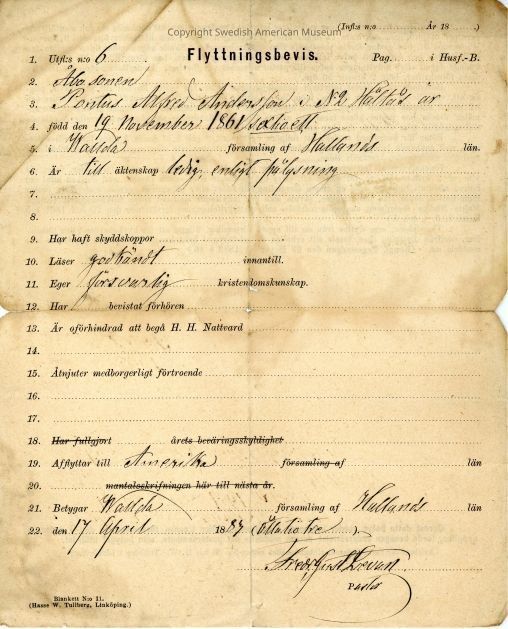 Copyright Swedish American Museum
(Infl: n:o År 18 )
Flyttningsbevis.
1. Utfl: n:o 6 Pag. i Husf.-B.
2. Åbosonen
3. Pontus Alfred Andersson i N2 Hältås är
4. född den 19 November 1861 sextioett
5. i Wallda församling af Hallands län.
6. Är till äktenskap ledig, enligt pålysning
7.
8.
9. Har haft skyddskoppor
10. Läser godkändt innantill.
11. Eger försvarlig kristendomskunskap.
12. Har bevistat förhören
13. Är oförhindrad att begå H. H. Nattvard
14.
15. Åtnjuter medborgerligt förtroende
16.
17.
18. Har fullgjort årets beväringsskyldighet
19. Afflyttar till Amerika församling af län
20. mantalsskrifningen här till nästa år.
21. Betygar Wallda församling af Hallands län
22. den 17 April 1883 (Åttatiotre).
Pastor
Blankett N:o 11.
(Hasse W. Tullberg, Linköping.)